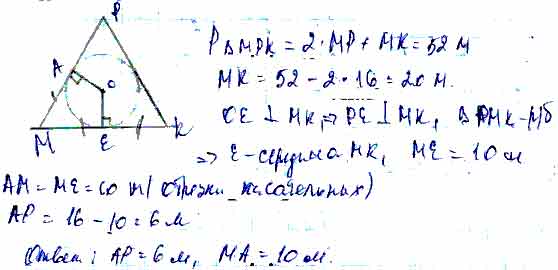 P
A
O
M
E
K
P△MPK = 2·MP + MK = 52 м
MK = 52 - 2·16 = 20 м.
OE ⊥ MK, ⇒ PE ⊥ MK, △PMK - р/б
⇒ E - середина MK, ME = 10 м
AM = ME = 10 м (отрезки касательных)
AP = 16 - 10 = 6 м
Ответ: AP = 6 м, MA = 10 м.